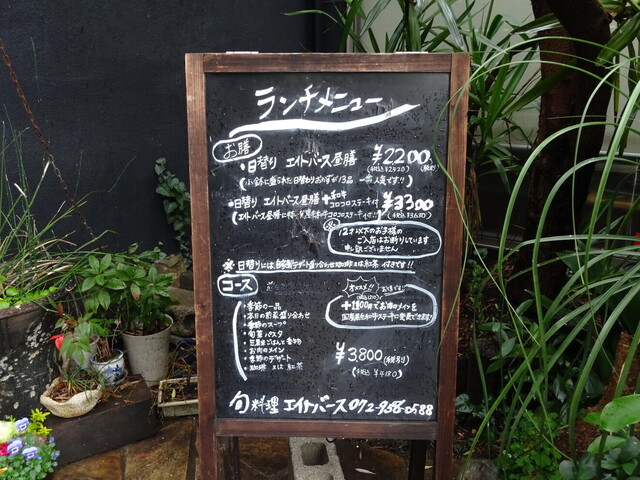 ランチメニュー
お膳
・日替り エイトバース昼膳 ¥2200(税別)
(税込¥2420)
(小鉢に盛られた日替りおかずが13品 一番人気です!!)
・日替り エイトバース昼膳+和牛コロコロステーキ付 ¥3300
(税込¥3630)
12才以下のお子様の
ご入店はお断りしています
申し訳ございません
※日替りには、自家製デザート盛り合わせ 珈琲又は紅茶 付きです!!
コース
・季節の一品
・本日の前菜盛り合わせ
・季節のスープ
・旬菜パスタ
・お肉のメイン
・季節のデザート
・珈琲 又は 紅茶
オススメ!! お得です!!
+1800円でお肉のメインを
国産黒毛和牛ステーキに変更できます!!
¥3,800(税別)
(税込 ¥4180)
旬料理 エイトバース 072-958-0588